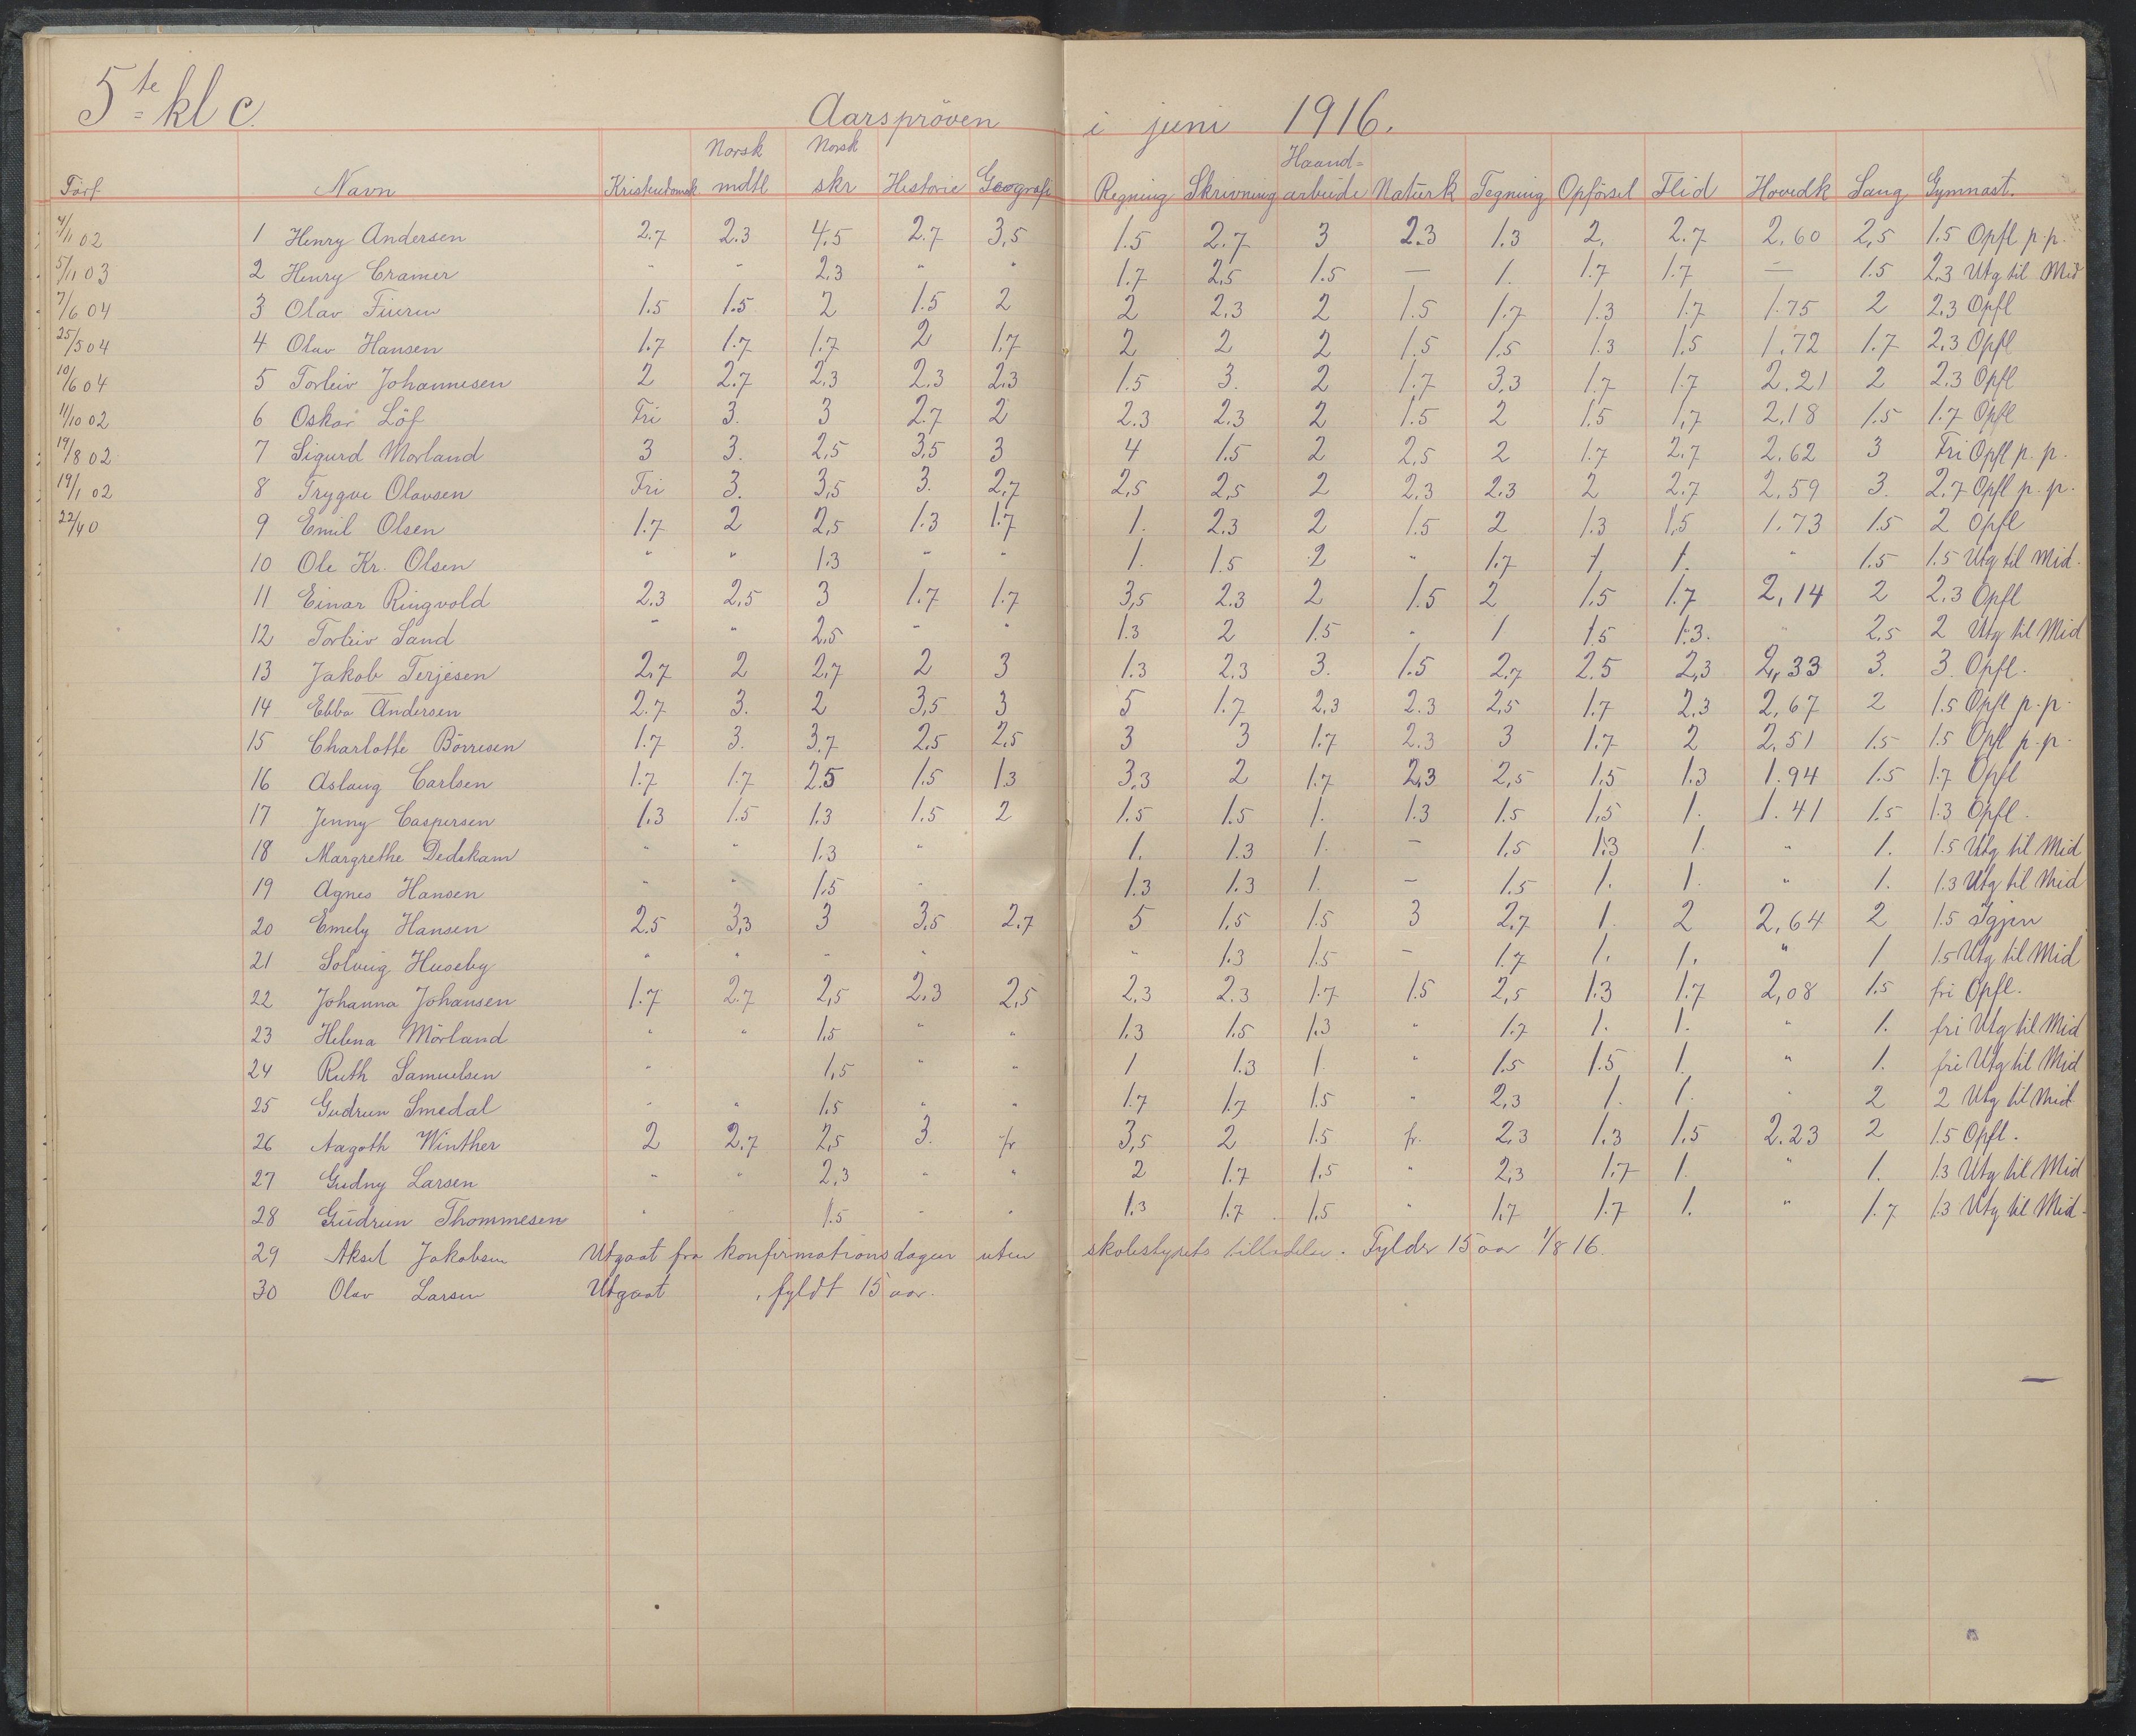 5te kl c.
Aarsprøven i juni 1916.
Født Navn Kristendomsk Norsk mdtl Norsk skr Historie Geografi Regning Skrivning Haand=arbeide Naturk Tegning Opførsel Flid Hovedk Sang Gymnast.
4/1 02 1 Henry Andersen 2.7 2.3 4.5 2.7 3,5 1.5 2.7 3 2.3 1.3 2. 2.7 2.60 2,5 1.5 Opfl p.p.
5/1 03 2 Henry Cramer " " 2.3 " " 1.7 2,5 1.5 — 1. 1.7 1.7 — 1.5 2.3 Utg til Mid
7/6 04 3 Olav Fiuren 1.5 1.5 2 1.5 2 2 2.3 2 1.5 1.7 1.3 1.7 1.75 2 2.3 Opfl
25/5 04 4 Olav Hansen 1.7 1.7 1.7 2 1.7 2 2 2 1.5 1.5 1.3 1.5 1.72 1.7 2.3 Opfl
10/6 04 5 Torleiv Johannesen 2 2.7 2.3 2.3 2.3 1.5 3. 2 1.7 3.3 1.7 1.7 2.21 2 2.3 Opfl
11/10 02 6 Oskar Löf Fri 3. 3 2.7 2 2.3 2.3 2 1.5 2 1.5 1,7 2,18 1.5 1.7 Opfl
19/8 02 7 Sigurd Morland 3 3. 2,5 3,5 3 4 1.5 2 2,5 2 1.7 2,7 2.62 3 Fri Opfl p.p.
19/1 02 8 Trygve Olavsen Fri 3. 3,5 3. 2,7 2,5 2,5 2 2.3 2.3 2 2.7 2,59 3. 2.7 Opfl p.p.
22/4 0 9 Emil Olsen 1.7 2 2,5 1.3 1.7 1. 2.3 2 1.5 2 1.3 1,5 1.73 1.5 2 Opfl
10 Ole Kr. Olsen " " 1.3 " " 1. 1.5 2 " 1.7 1. 1. " 1.5 1.5 Utg til Mid.
11 Einar Ringvold 2.3 2,5 3 1.7 1.7 3,5 2.3 2 1.5 2 1.5 1.7 2,14 2 2.3 Opfl
12 Torleiv Sand " " 2,5 " " 1.3 2 1.5 " 1 1.5 1.3. " 2,5 2 Utg til Mid
13 Jakob Terjesen 2,7 2 2,7 2 3 1.3 2.3 3. 1.5 2.7 2.5 2,3 2,33 3. 3. Opfl.
14 Ebba Andersen 2.7 3. 2 3,5 3 5 1.7 2.3 2.3 2,5 1.7 2.3 2,67 2 1.5 Opfl p.p.
15 Charlotte Börresen 1.7 3. 3.7 2,5 2,5 3 3 1.7 2.3 3 1.7 2 2,51 1.5 1.5 Opfl p.p.
16 Aslaug Carlsen 1.7 1.7 2.5 1.5 1.3 3,3 2 1.7 2,3 2,5 1,5 1.3 1.94 1.5 1.7 Opfl
17 Jenny Caspersen 1.3 1.5 1.3 1.5 2 1.5 1.5 1. 1.3 1.5 1,5 1. 1.41 1.5 1.3 Opfl.
18 Margrethe Dedekam " " 1.3 " 1. 1.3 1. — 1.5 1.3 1. " 1. 1.5 Utg til Mid
19 Agnes Hansen " " 1.5 " 1.3 1.3 1. — 1.5 1. 1. " 1. 1.3 Utg til Mid
20 Emely Hansen 2.5 3,3 3 3,5 2.7 5 1.5 1.5 3 2,7 1. 2 2,64 2 1.5 Igjen
21 Solveig Huseby " " " " " 1.3 1.5 — 1.7 1. 1. " 1 1.5 Utg til Mid
22 Johanna Johansen 1.7 2.7 2,5 2.3 2,5 2,3 2.3 1.7 1.5 2,5 1.3 1.7 2,08 1.5 fri Opfl.
23 Helena Mörland " " 1.5 " " 1.3 1.5 1.3 " 1.7 1. 1. " 1. fri Utg til Mid
24 Ruth Samuelsen " 1,5 " " 1 1.3 1 " 1.5 1.5 1. " 1. fri Utg til Mid
25 Gudrun Smedal " " 1.5 " " 1.7 1.7 1.5 " 2,3 1. 1. " 2 2 Utg til Mid
26 Aagoth Winther 2 2.7 2,5 3. fr 3,5 2 1.5 fr. 2.3 1.3 1.5 2.23 2 1.5 Opfl.
27 Gudny Larsen " " 2.3 " " 2 1.7 1.5 " 2,3 1.7 1. " 1. 1.3 Utg til Mid
28 Gudrun Thommesen " " 1.5 " " 1.3 1.7 1.5 " 1.7 1.7 1. " 1.7 1.3 Utg til Mid.
29 Aksel Jakobsen Utgaat fra konfirmationsdagen uten skolestyrets tilladelse. Fylder 15 aar 1/8 16.
30 Olav Larsen Utgaat , fyldt 15 aar.